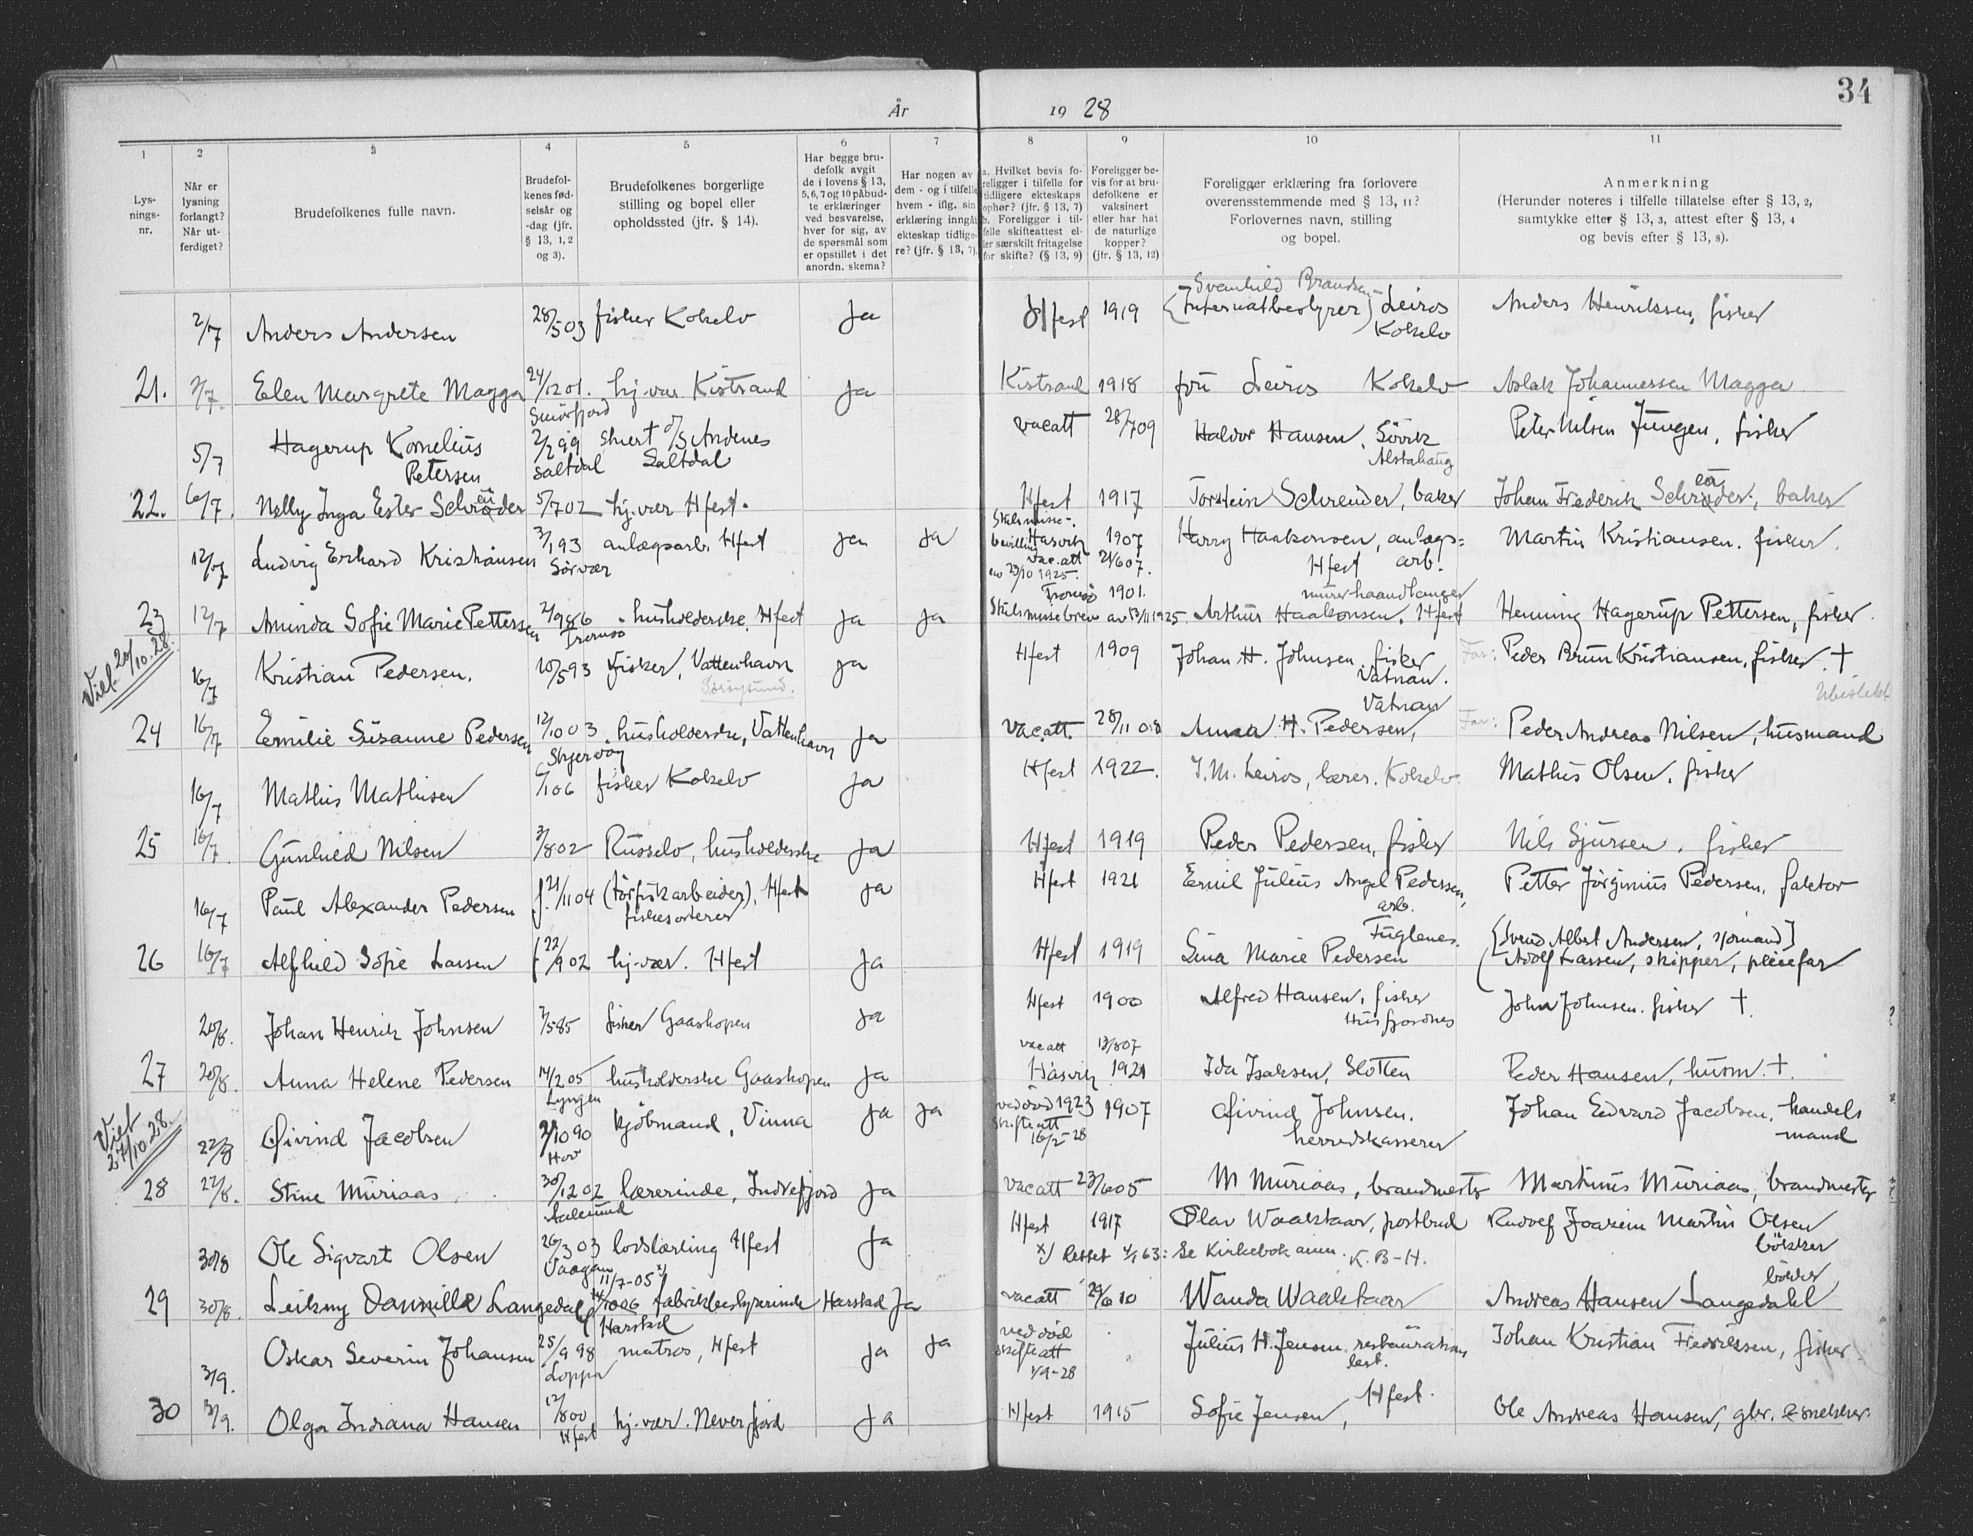 34
År 1928
1 2 3 4 5 6 7 8 9 10 11
Lys-
nings-
nr.
Når er
lysning
forlangt?
Når ut-
ferdiget?
Brudefolkenes fulle navn.
Brudefol-
kenes fød-
selsår og
-dag (jfr.
§ 13, 1, 2
og 3).
Brudefolkenes borgerlige
stilling og bopel eller
opholdssted (jfr. § 14).
Har begge bru-
defolk avgit
de i lovens § 13,
5, 6, 7 og 10 påbud-
te erklæringer
ved besvarelse,
hver for sig, av
de spørsmål som
er opstillet i det
anordn. skema?
Har nogen av
dem - og i tilfelle
hvem - iflg. sin
erklæring inngå
ekteskap tidlige-
re? (jfr. § 13, 7).
a. Hvilket bevis fo-
religger i tilfelle for
tidligere ekteskaps
ophør? (jfr. § 13, 7)
b. Foreligger i til-
felle skifteattest el-
ler særskilt fritagelse
for skifte? (§ 13, 9)
Foreligger be-
vis for at bru-
defolkene er
vaksinert
eller har hat
de naturlige
kopper?
(jfr. § 13, 12)
Foreligger erklæring fra forlovere
overensstemmende med § 13, 11?
Forlovernes navn, stilling
og bopel.
Anmerkning
(Herunder noteres i tilfelle tillatelse efter § 13, 2,
samtykke efter § 13, 3, attest efter § 13, 4
og bevis efter § 13, 8).
Svenhild Brandsen
2/7 Anders Andersen 28/5 03 fisker Kokelv Ja Hfest 1919 (Internatbestyrer) Leiros Kokelv Anders Henriksen, fisker
21. 2/7. Elen Margrete Magga 24/12 01. hj. vær Kistrand Ja Kistrand 1918 fru Leiros Kokelv Aslak Johannessen Magga
Smørfjord
5/7 Hagerup Kornelius Petersen 2/2 99 Saltdal stuert d/s Andenes Saltdal vacatt 28/7 09 Haldor Hansen, Søvik Alstahaug Peter Nilsen Jungen, fisker
22. 6/7. Nelly Inga Ester Schrøder 5/7 02 hj. vær Hfest. Hfest 1917 Torstein Schreuder, baker Johan Frederik Schrøder, baker
12/7 Ludvig Erhard Kristiansen 3/1 93 Sørvær anlægsarb. Hfest Ja Ja Skilsmisse-bevilling av 23/10 1925. Hasvik 1907 vac.att 21/6 07. Harry Haakonsen, anlægs=arb. Hfest Martin Kristiansen. fisker.
23 12/7 Aminda Sofie Marie Pettersen 2/9 86 Tromsø husholderske, Hfest Ja Ja Tromsø 1901. Skilsmissebrev av 13/11 1925 Arthur Haakonsen, murerhaandlanger Hfest Henning Hagerup Pettersen, fisker.
Viet 20/10.28.
16/7 Kristian Pedersen. 10/5 93 Fisker, Vattenhavn Sørøysund. Ja Hfest 1909 Johan H. Johnsen, fisker Vatnan. Far: Peder Brun Kristiansen, fisker. †
24 16/7 Emilie Susanne Pedersen 12/10 03 Skjervøy husholderske, Vattenhavn Ja Vac.att. 28/11 08 Anna H. Pedersen, Vatnan Far: Peder Andreas Nilsen, husmand
16/7 Mathis Mathisen 6/1 06 fisker Kokelv Ja Hfest 1922. J. M. Leiros, lærer. Kokelv. Mathis Olsen, fisker
25 16/7. Gunhild Nilsen 3/8 02 Russelv, husholderske Ja Hfest 1919 Peder Pedersen, fisker Nils Sjursen, fisker
16/7 Paul Alexander Pedersen f. 21/11 04 (tørfiskarbeider), Hfest fiskesorterer Ja Hfest 1921 Emil Julius Angel Pedersen, arb. Petter Jørginius Pedersen, faktor
26 16/7 Alfhild Sofie Larsen f 22/9 02 hj. vær. Hfest Ja Hfest 1919 Lina Marie Pedersen Fuglenes. (Svend Albert Andersen, sjømand)
Adolf Larsen, skipper, pleiefar
20/8. Johan Henrik Johnsen 7/5 85 fisker Gaashopen Ja Hfest 1900 Alfred Hansen, fisker Husfjordnes John Johnsen. fisker †
27 20/8. Anna Helene Pedersen 14/2 05 Lyngen husholderske Gaashopen Ja vac att 13/8 07 Hasvik 1921 Ida Isaksen, Slotten Peder Hansen, husm. †.
Viet 27/10.28.
22/8 Øivind Jacobsen 2/10 90 kjøbmand, Vinna Ja Ja ved død 1923 skifteatt 16/2-28 1907 Øivind Johnsen. herredskasserer Johan Edvard Jacobsen, handels mand
28 22/8. Stine Muriaas 30/12 02 Aalesund lærerinde, Indrefjord Ja vac att 23/6 05 M Muriaas, brandmester Martinus Muriaas, brandmester
30/8 Ole Sigvart Olsen 26/3 03 Vaagan lodslærling Hfest Ja Hfest 1917 Olav Waalstaar, postbud Rudolf Joakim Martin Olsen bøkker
x) Rettet 4/1 63: Se Kirkebok anm. K. B-H.
11/7-05 x)
29 30/8. Leikny Dannilla Langedal 14/10 06 Harstad fabrikbestyrerinde Harstad Ja vac att 29/6 10 Wanda Waalstaar Andreas Hansen Langedahl bøkker
3/9. Oskar Severin Johansen 25/9 98 Loppa matros, Hfest Ja Ja ved død skifteatt 1/9-28 Julius H. Jensen restaurations Johan Kristian Fredriksen, fisker.
30 3/9. Olga Indiana Hansen 12/8 00 Hfest hj. vær. Neverfjord Ja Hfest 1915 Sofie Jensen, Hfest. Ole Andreas Hansen, gbr. snekker.